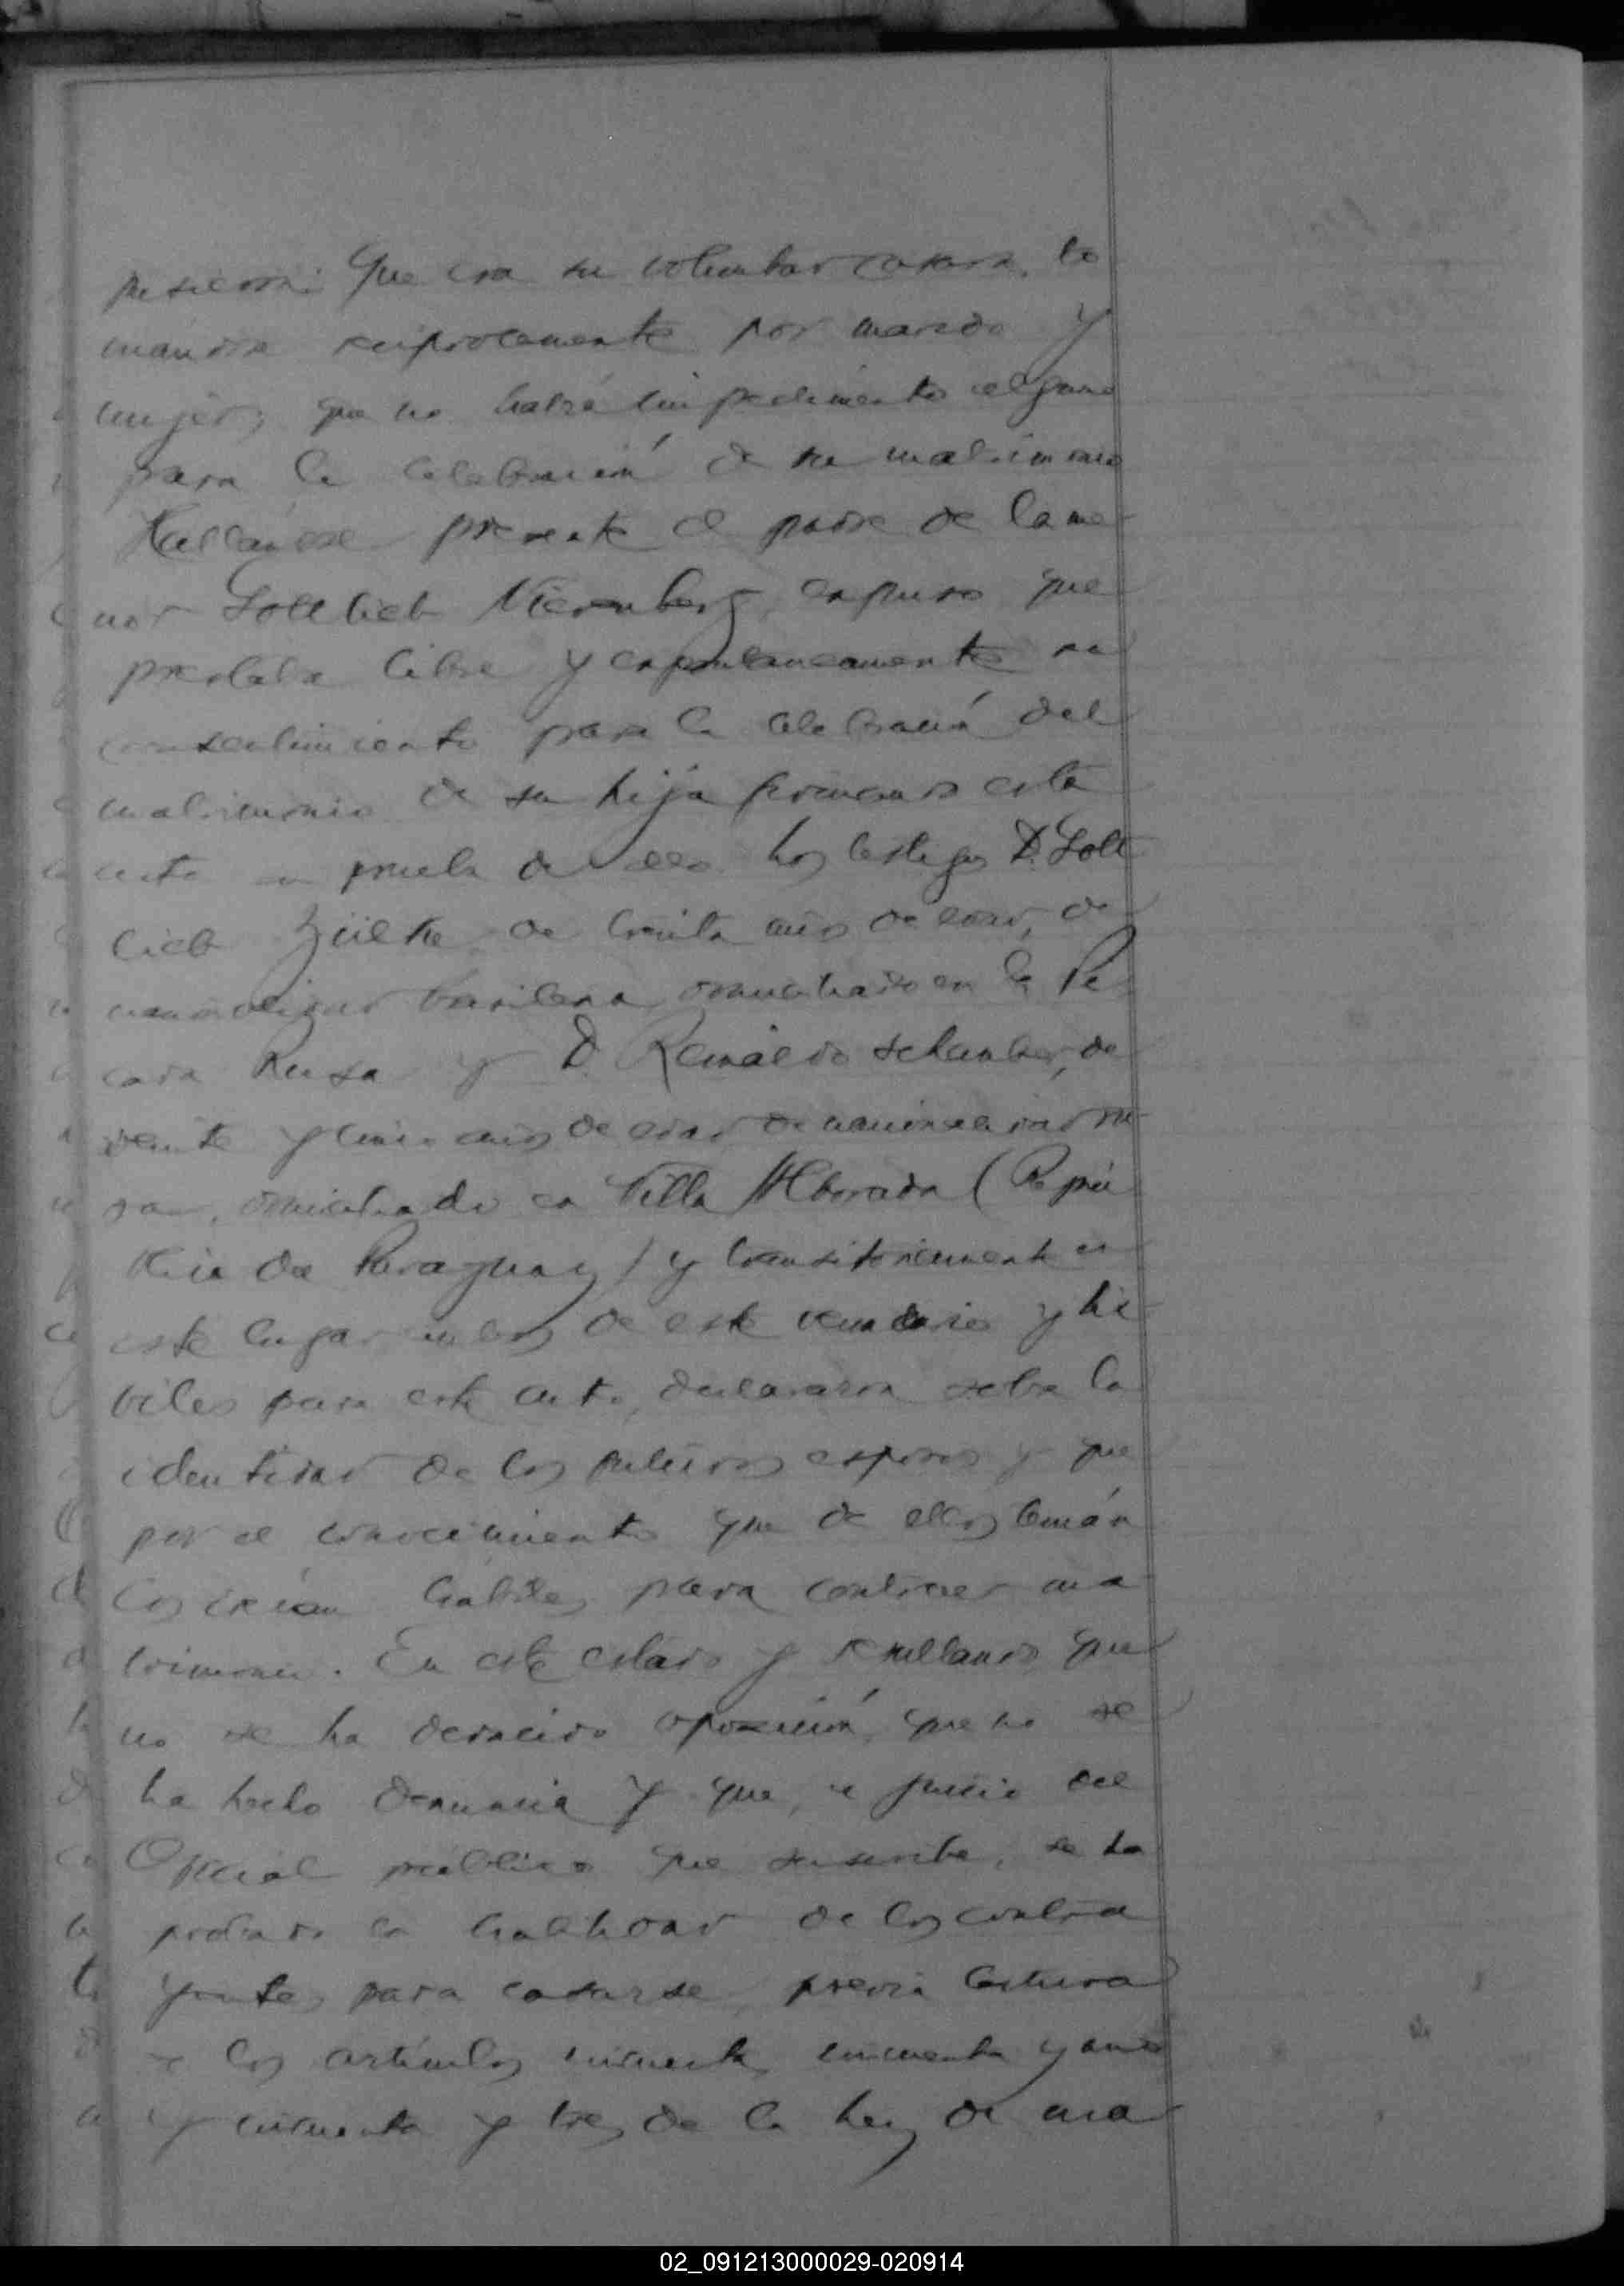 pusieron: Que era su voluntad casarse, to
mándose reciprocamente por marido y
mujer; que no había impedimento alguno
para la celebración de su matrimonio
Hallándose presente el padre de la me-
nor Gottlieb Nierenberg, expuso que
prestaba libre y espontaneamente su
consentimiento para la celebración del
matrimonio de su hija firmando esta
acta en prueba de ello. Los testigos D. Gott
lieb Zielke de treinta años de edad, de
nacionalidad brasilera, domiciliado en la Pi
cada Rusa y D. Reinaldo Schamber, de
veinte y cinco años de edad de nacionalidad ru
sa, domiciliado en Villa Alborada (Repú
blica de Paraguay) y transitoriamente en
este lugar ambos de este vecindario y há
biles para este acto, declararon sobre la
identidad de los futuros esposos y que
por el conocimiento que de ellos tenían
los creían hábiles para contraer ma
trimonio. En este estado y resultando que
no se ha deducido oposición, que no se
ha hecho denuncia y que, a juicio del
Oficial público que suscribe, se ha
probado la habilidad de los contra
yentes para casarse, previa lectura
de los artículos cincuenta, cincuenta y uno
y cincuenta y tres de la ley de ma
02_091213000029-020914